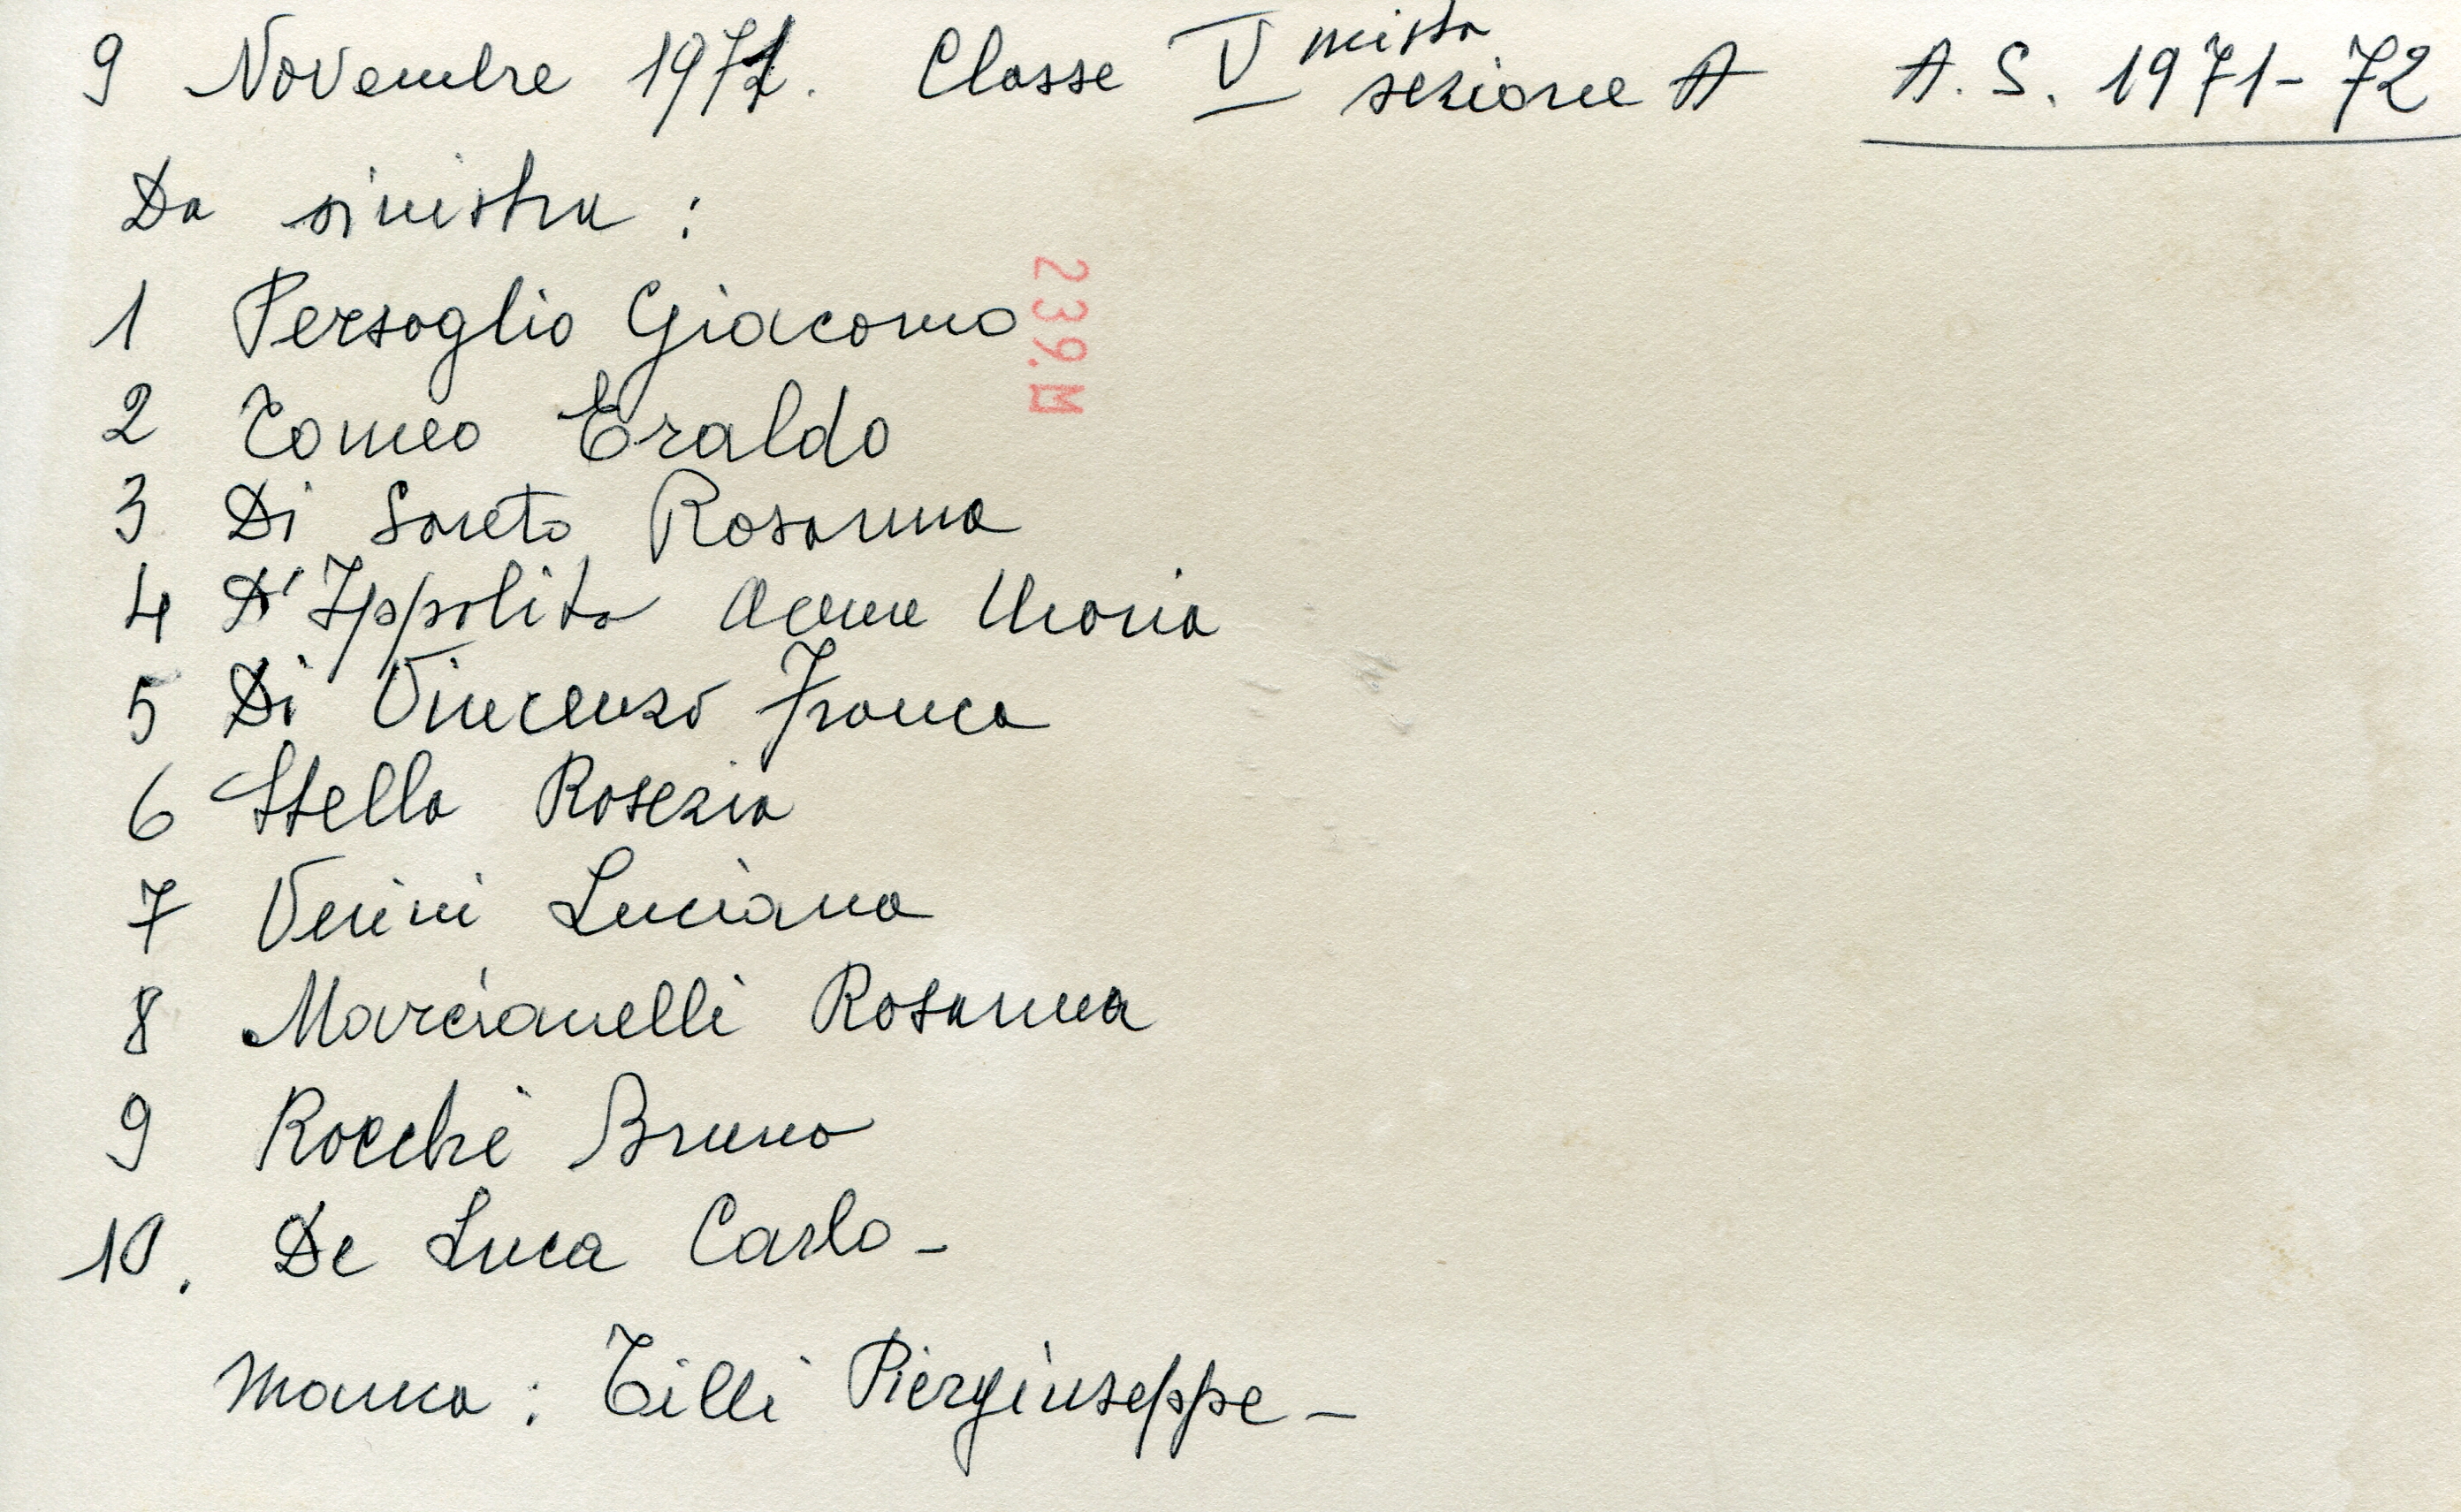 9 Novembre 1971. Classe V mista sezione A A.S. 1971-72
Da sinistra:
1 Persoglio Giacomo
2 Tomeo Eraldo
3 Di Loreto Rosanna
4 D'Ippolito Anna Maria
5 Di Vincenzo Franca
6 Stella Rosezia
7 Verini Luciana
8 Marcianelli Rosanna
9 Rocchi Bruno
10. De Luca Carlo-
Manca: Tilli Piergiuseppe-
239.M